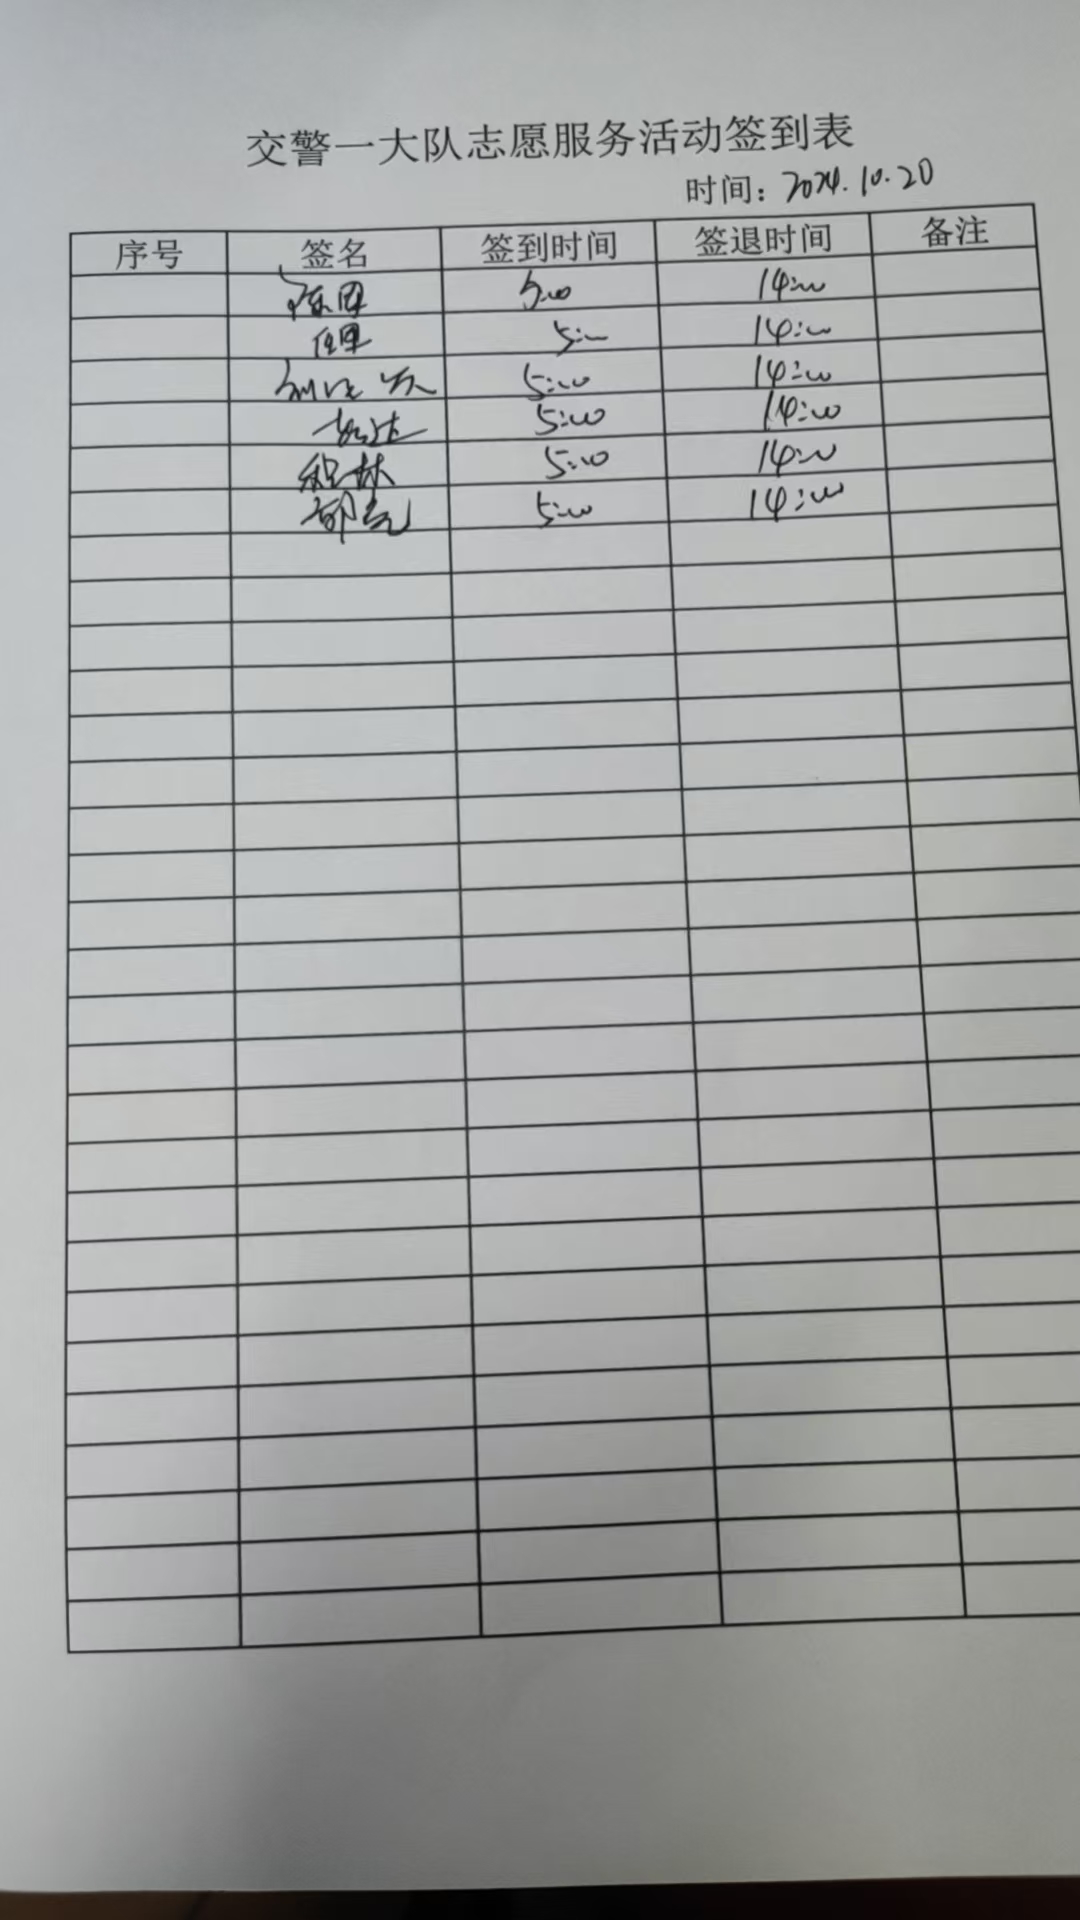 交警一大队志愿服务活动签到表
时间：2024.10.20
序号 签名 签到时间 签退时间 备注
5:00 14:00
5:00 14:00
5:00 14:00
5:00 14:00
程林 5:00 14:00
5:00 14:00